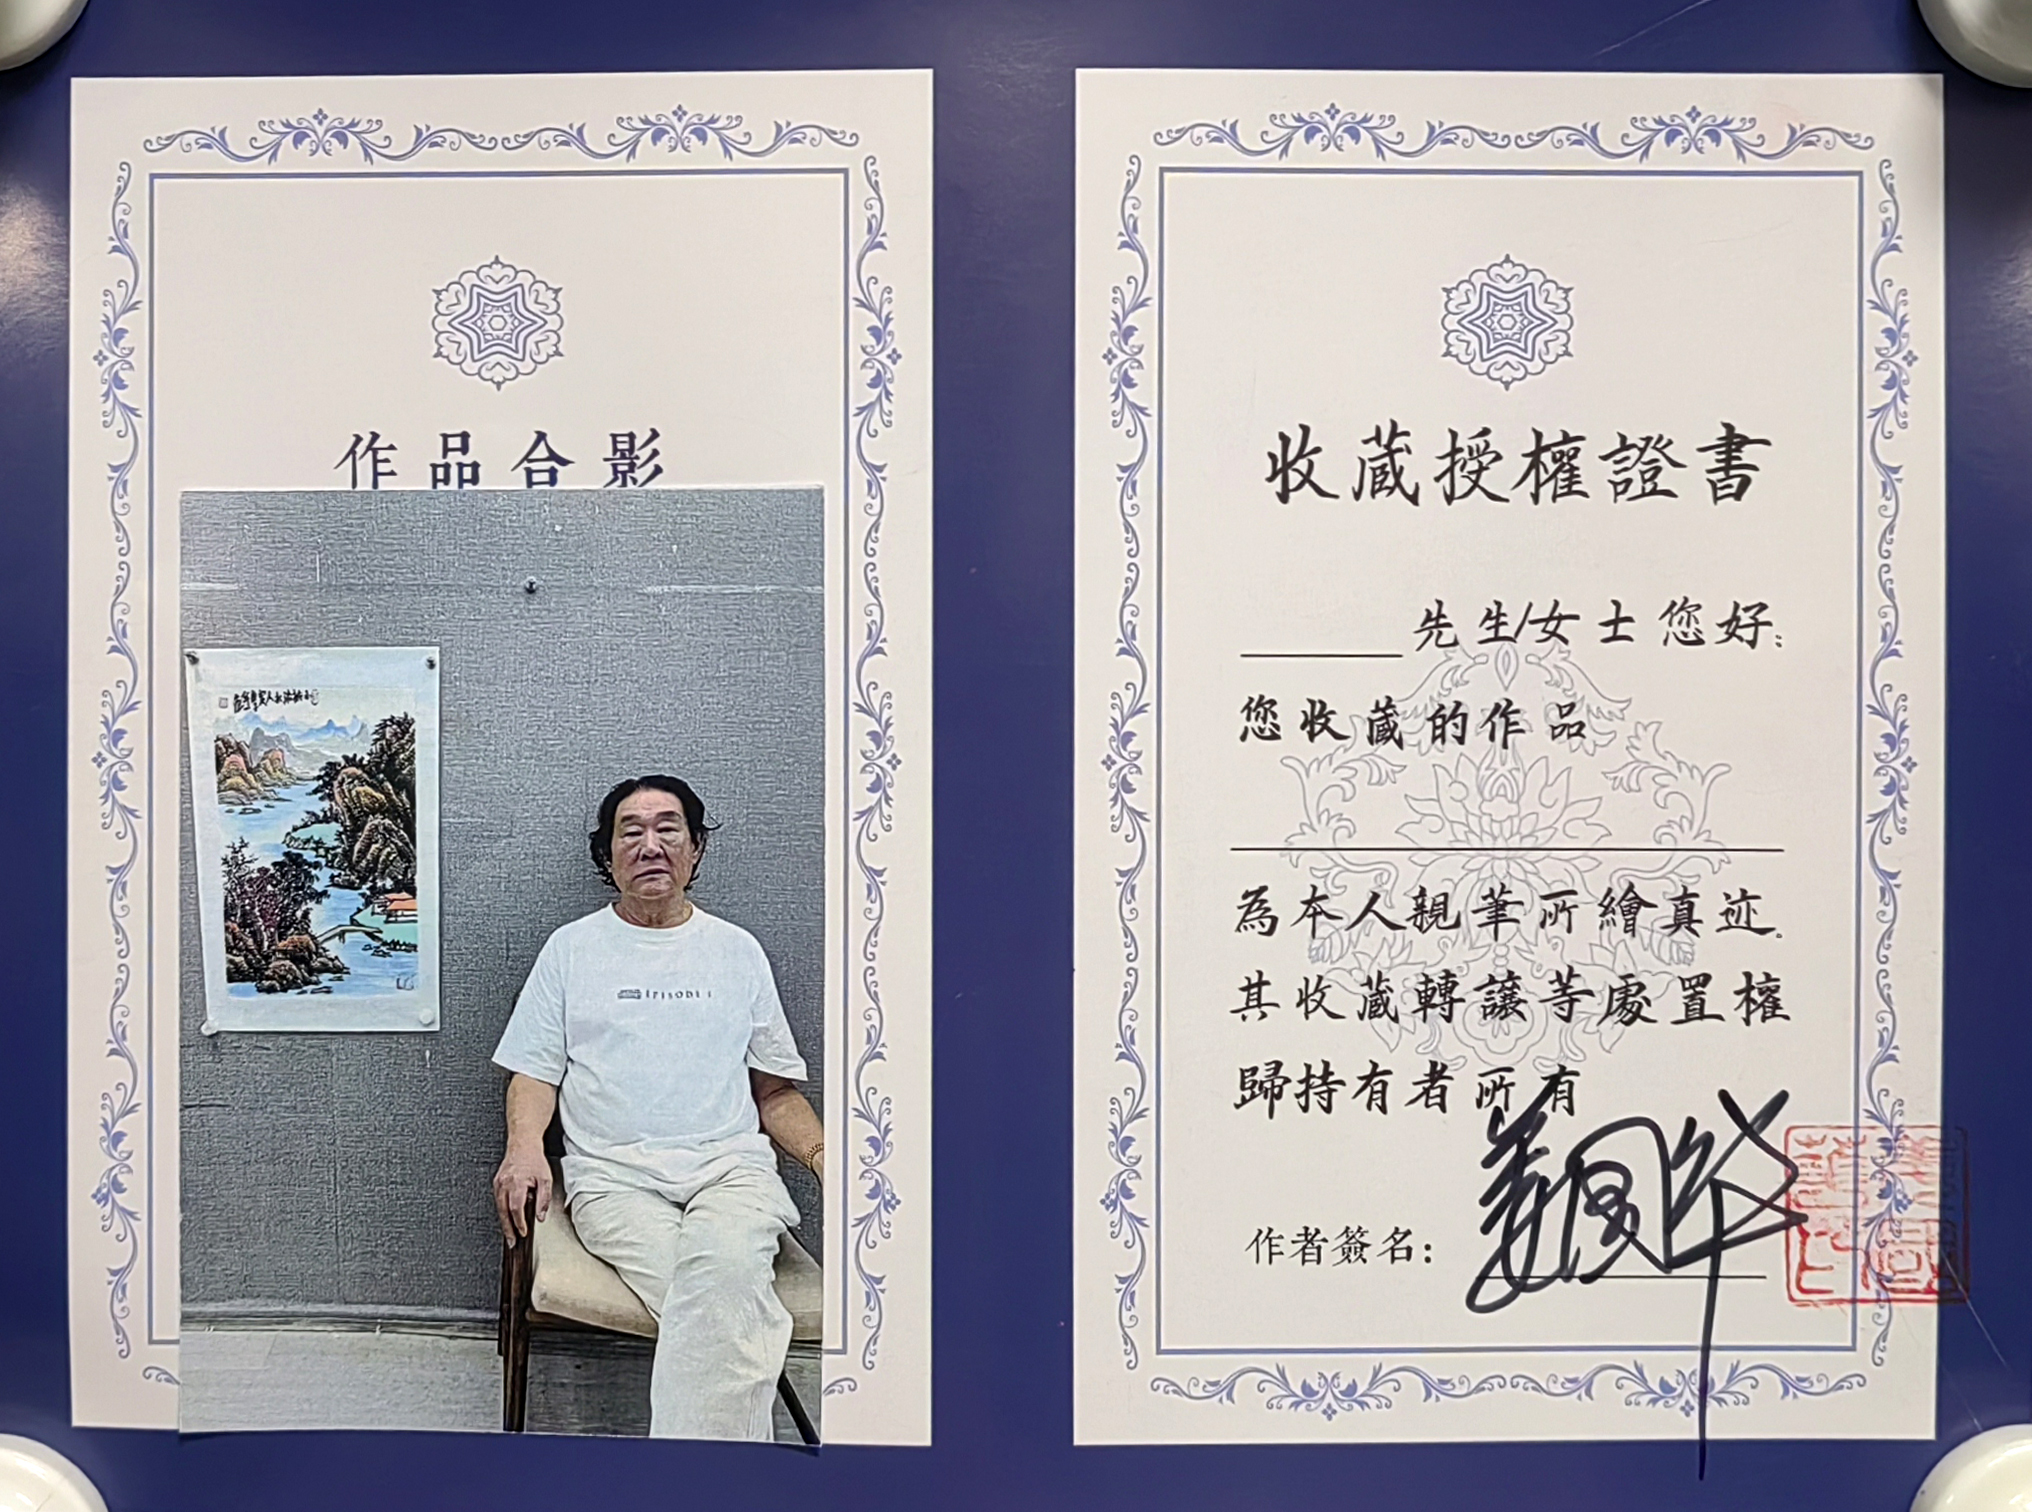 作品合影
EPISODE I
收蔵授權證書
先生/女士您好:
您收蔵的作品
為本人親筆所繪真迹。
其收蔵轉讓等處置權
歸持有者所有
作者簽名:
姜國華